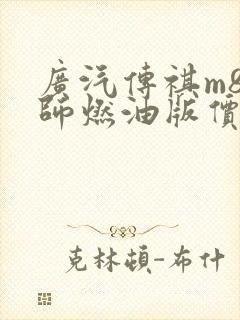 廣汽傳祺m8
師燃油版價
克林頓-布什